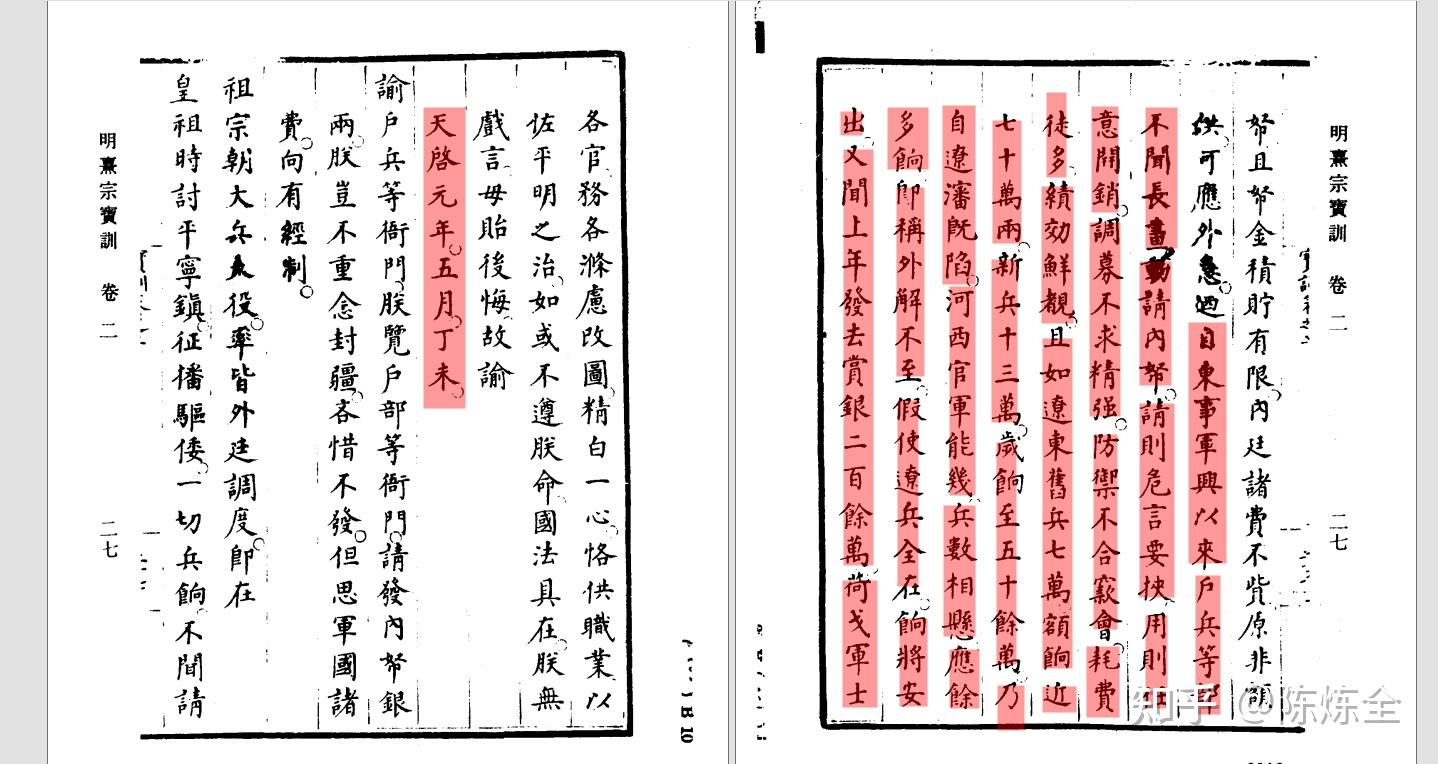 各官務各滌慮改圖、精白一心、恪供職業以
佐平明之治、如或不遵朕命、國法具在、朕無
戲言、毋貽後悔、故諭
天啓元年。五月、丁未、
諭戶兵等衙門、朕覽戶部等衙門、請發內帑銀
兩、朕豈不重念封疆、吝惜不發。但思軍國諸
費。向有經制。
祖宗朝大兵大役。率皆外廷調度。即在
皇祖時討平寧鎮、征播驅倭、一切兵餉、不聞請
明熹宗寶訓 卷二 二七
明熹宗寶訓 卷二 二七
帑且帑金積貯有限。內廷諸費不貲原非額
供。可應外急。迺自東事軍興以來戶兵等部
不聞長畫動請內帑。請則危言要挾、用則任
意開銷。調募不求精强。防禦不合窾會。耗費
徒多績効鮮覩。且如遼東舊兵七萬額餉近
七十萬兩。新兵十三萬。歲餉至五十餘萬。乃
自遼瀋既陷。河西官軍能幾、兵數相懸、應餘
多餉、即稱外解不至。假使遼兵全在。餉將安
出。又聞上年發去賞銀二百餘萬、荷戈軍士
B 10
知乎 @陈炼全